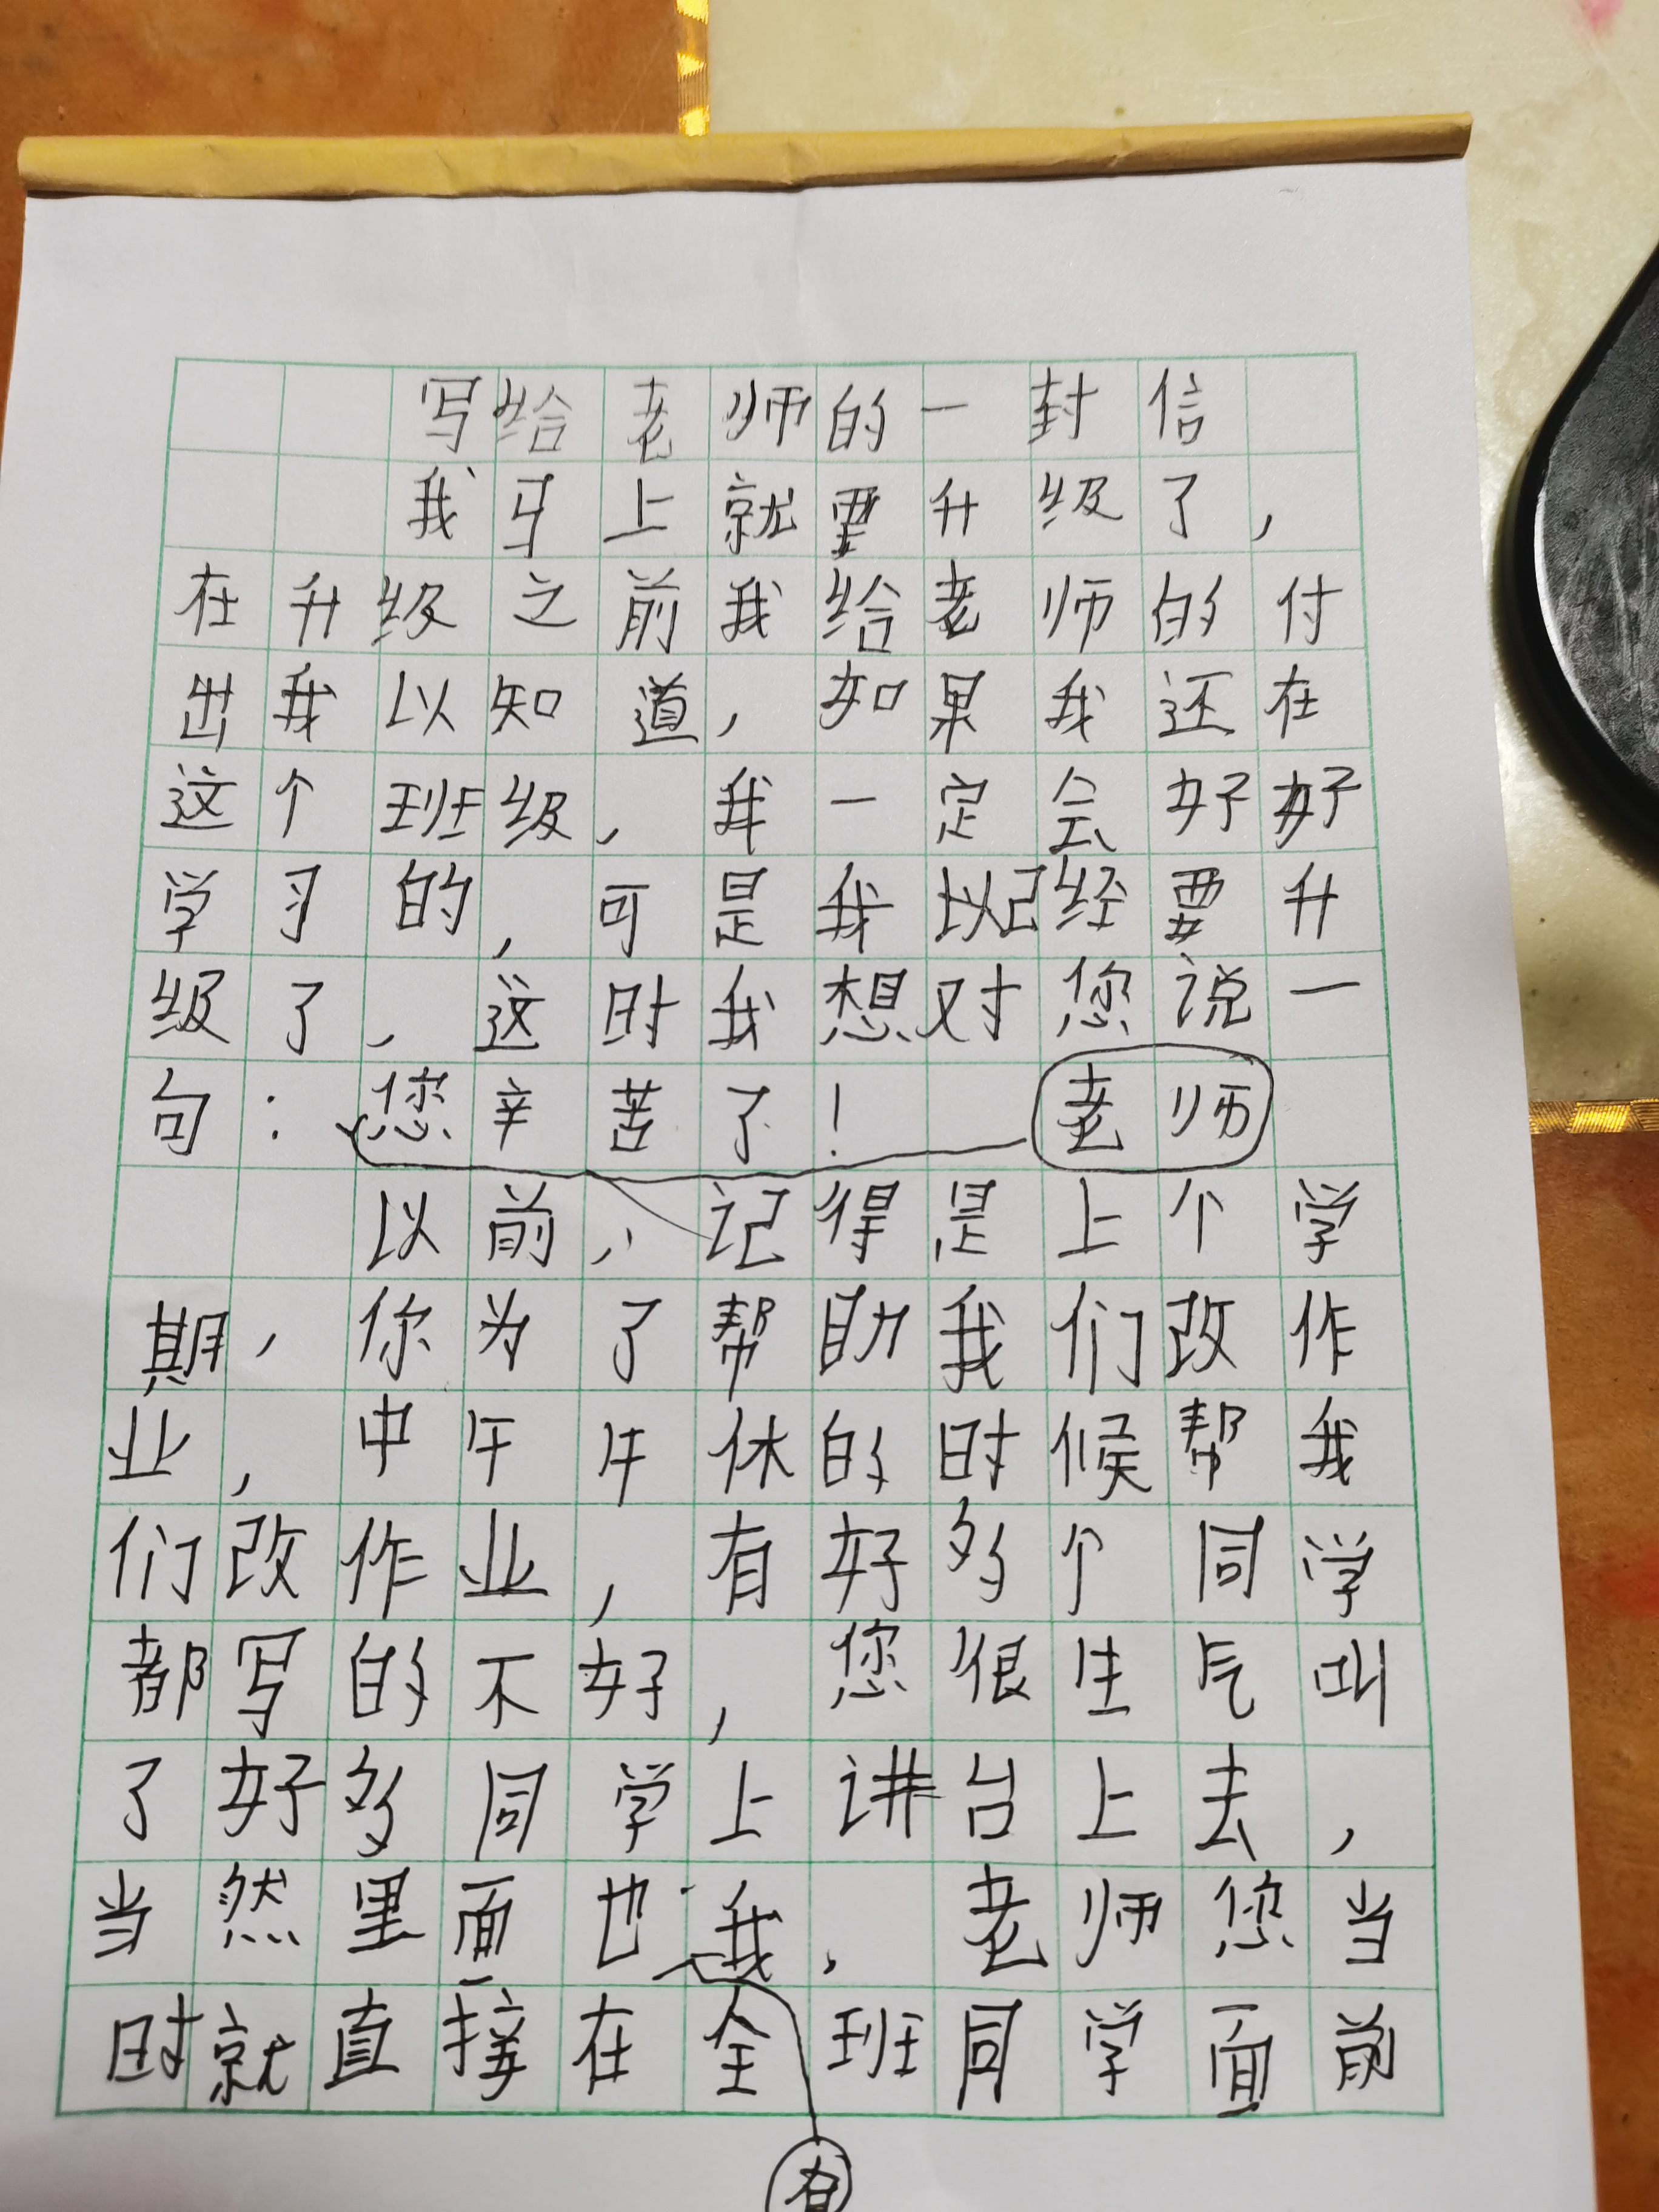 写给老师的一封信
我马上就要升级了，
在升级之前我给老师的付
出我以知道，如果我还在
这个班级，我一定会好好
学习的，可是我以己经要升
级了，这时我想对您说一
句：您辛苦了！老师
以前，记得是上个学
期，你为了帮助我们改作
业，中午午休的时候帮我
们改作业，有好多个同学
都写的不好，您很生气叫
了好多同学上讲台上去，
当然里面也我，老师您当
时就直接在全班同学面前
有